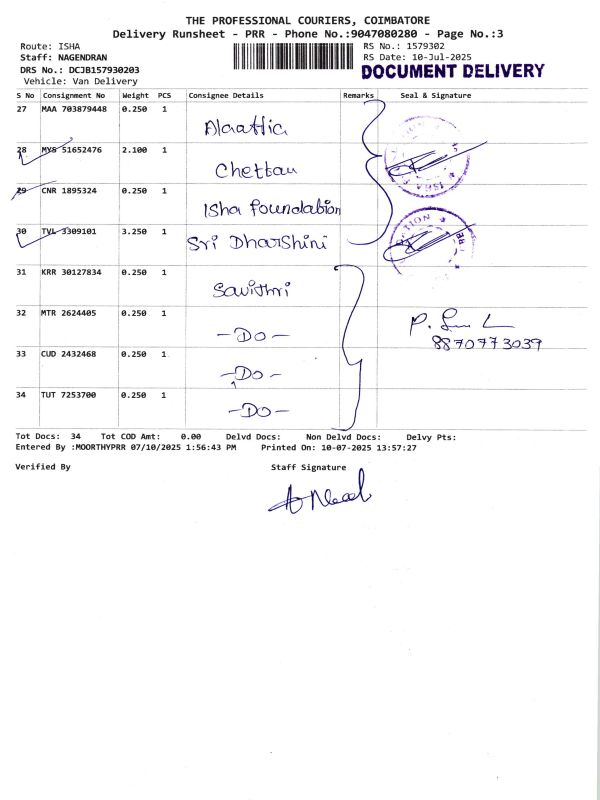 THE PROFESSIONAL COURIERS, COIMBATORE
Delivery Runsheet - PRR - Phone No.:9047080280 - Page No.:3
Route: ISHA
RS No.: 1579302
Staff: NAGENDRAN
RS Date: 10-Jul-2025
DRS No.: DCJB157930203
DOCUMENT DELIVERY
Vehicle: Van Delivery
S No Consignment No Weight PCS Consignee Details Remarks Seal & Signature
27 MAA 703879448 0.250 1
28 MYS 51652476 2.100 1 Chettan
29 CNR 1895324 0.250 1 Isha Foundation
30 TVL 3309101 3.250 1 Sri Dharshini
31 KRR 30127834 0.250 1 Savithri
32 MTR 2624405 0.250 1 -Do-
33 CUD 2432468 0.250 1 -Do-
34 TUT 7253700 0.250 1 -Do-
ISHA
TION
P.
8870773039
Tot Docs: 34 Tot COD Amt: 0.00 Delvd Docs: Non Delvd Docs: Delvy Pts:
Entered By :MOORTHYPRR 07/10/2025 1:56:43 PM Printed On: 10-07-2025 13:57:27
Verified By Staff Signature